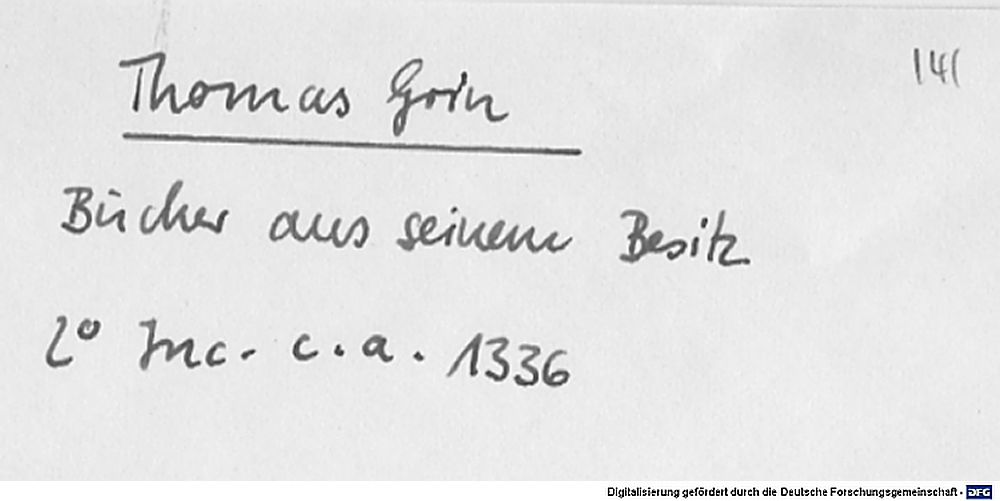 Thomas Grin
141
Bücher aus seinem Besitz
2° Inc. c. a. 1336
Digitalisierung gefördert durch die Deutsche Forschungsgemeinschaft - DFG